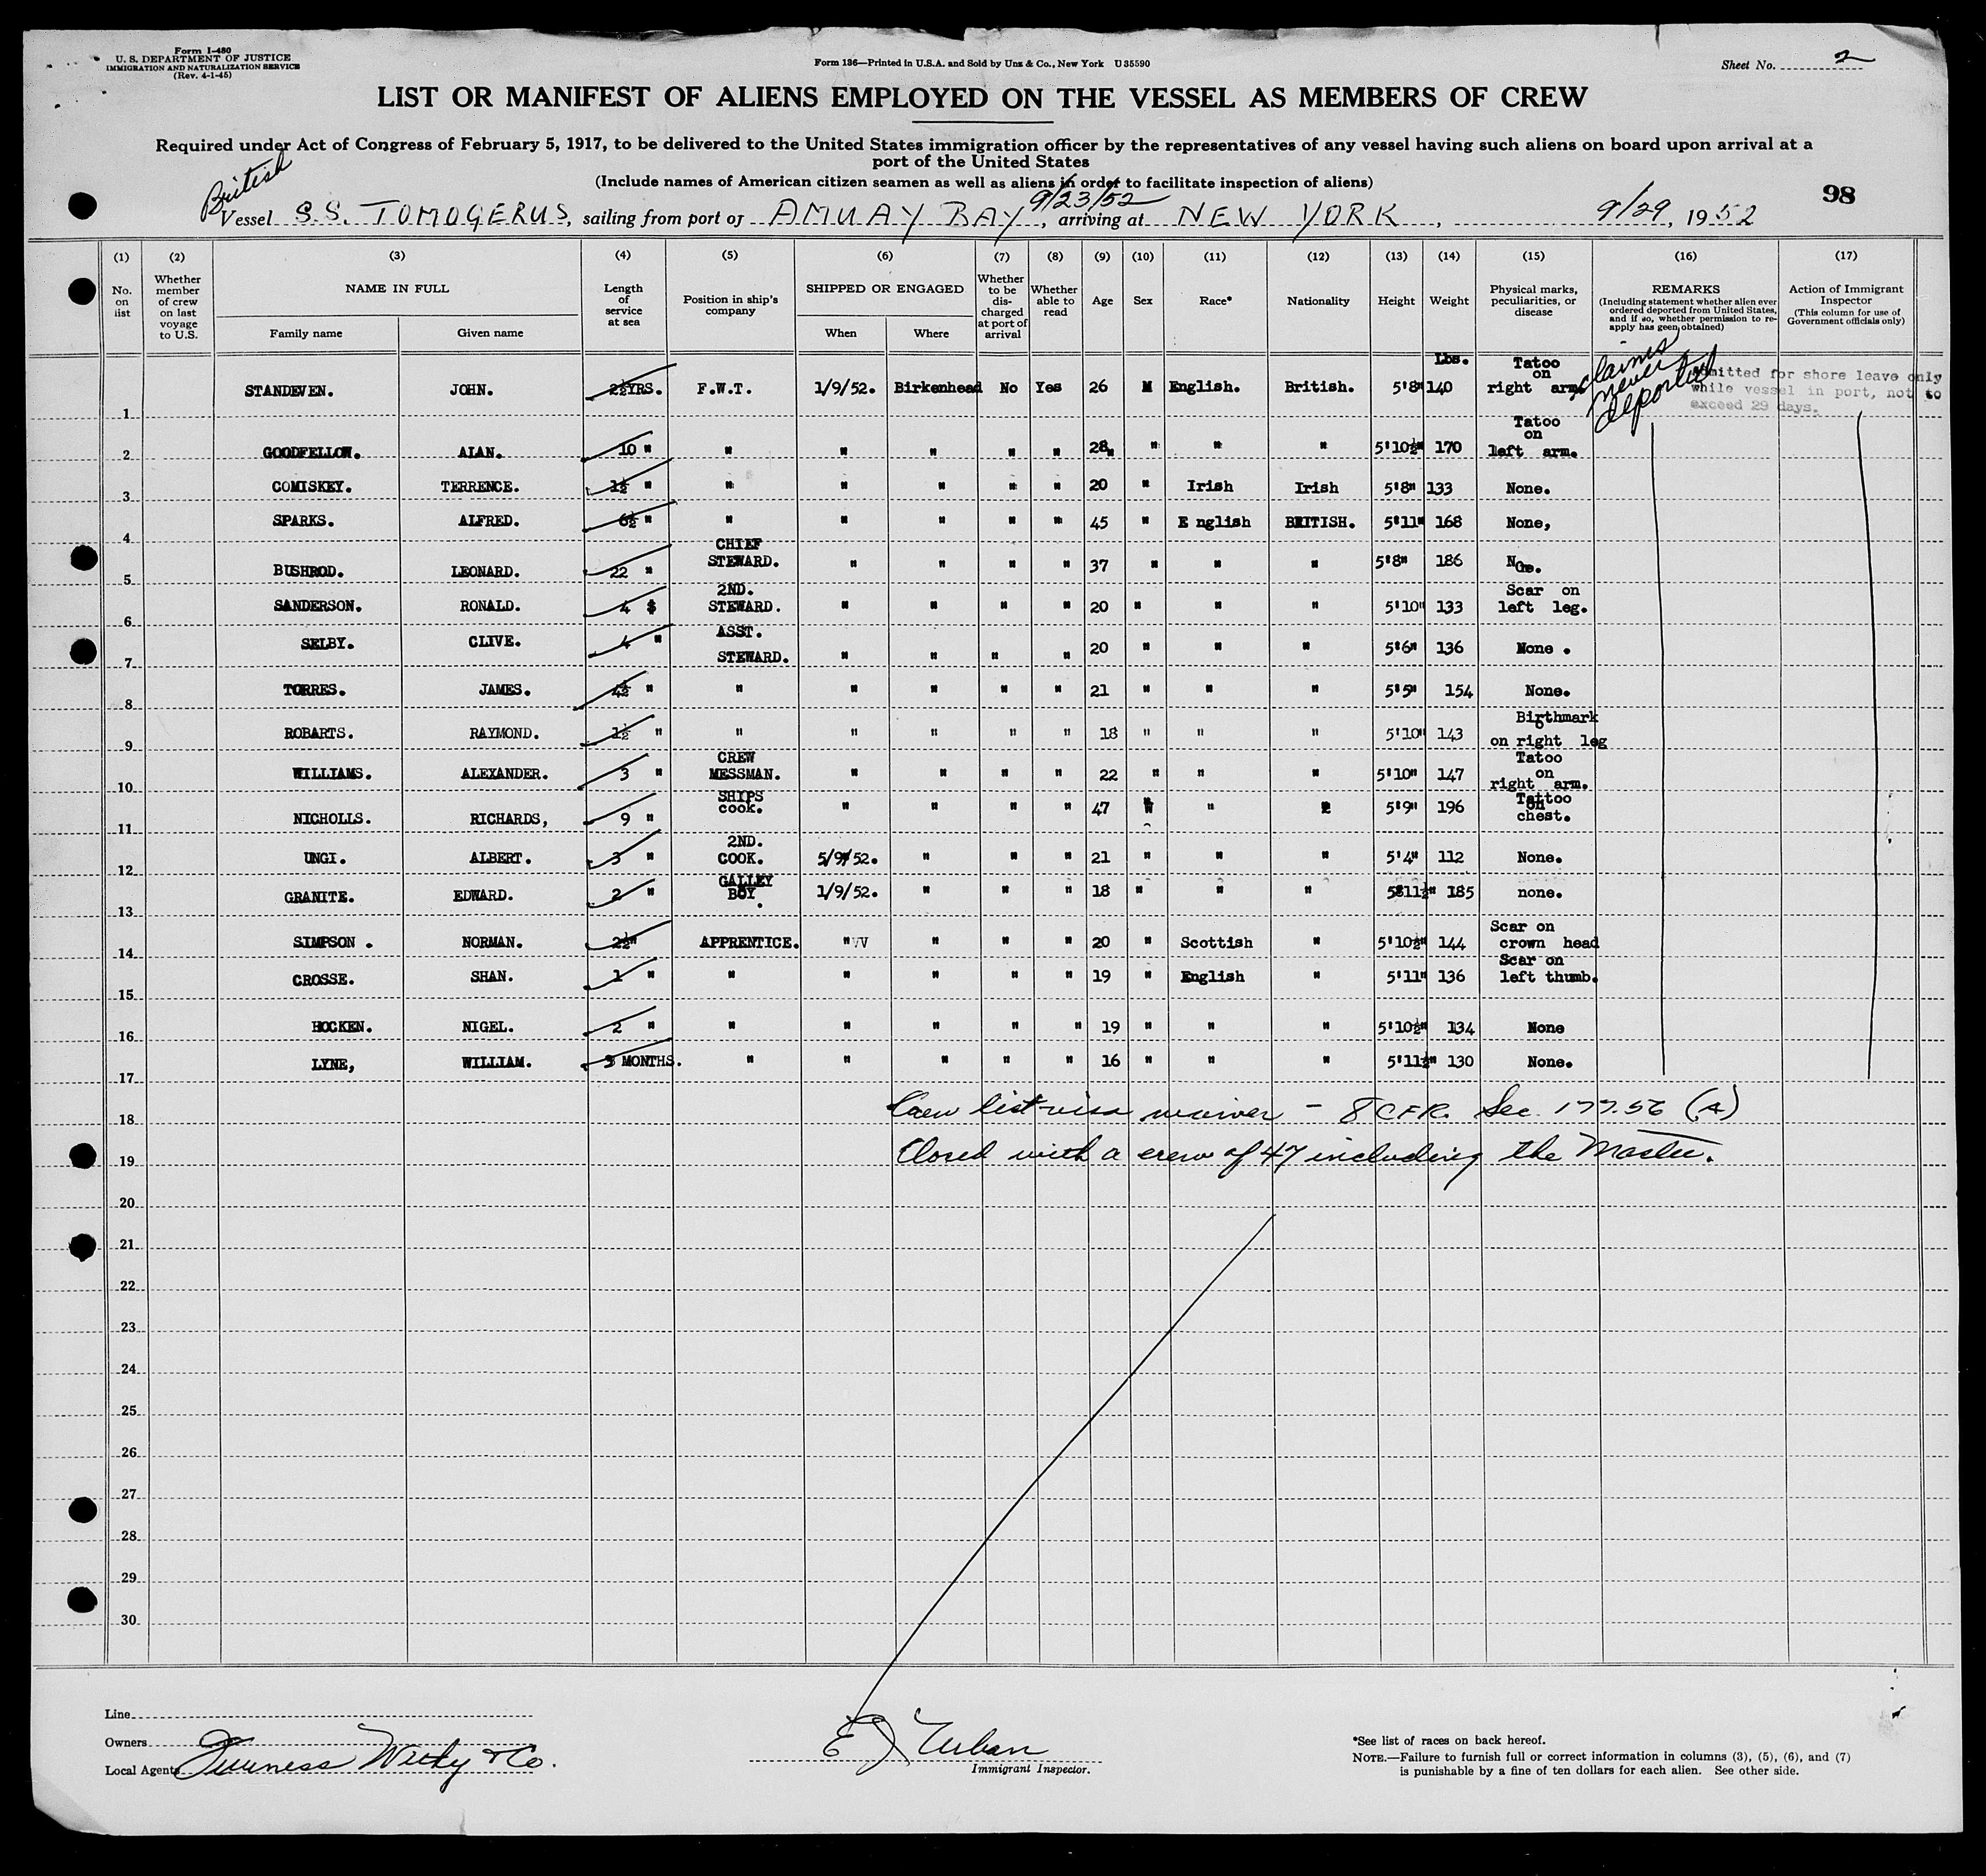 Form I-480
U. S. DEPARTMENT OF JUSTICE
IMMIGRATION AND NATURALIZATION SERVICE
(Rev. 4-1-45)
Form 136—Printed in U.S.A. and Sold by Unz & Co., New York U 35590
Sheet No. 2
LIST OR MANIFEST OF ALIENS EMPLOYED ON THE VESSEL AS MEMBERS OF CREW
Required under Act of Congress of February 5, 1917, to be delivered to the United States immigration officer by the representatives of any vessel having such aliens on board upon arrival at a
port of the United States
(Include names of American citizen seamen as well as aliens in order to facilitate inspection of aliens)
98
British
9/23/52
Vessel S.S. TOMOGERUS, sailing from port of AMUAY BAY, arriving at NEW YORK, 9/29, 1952
(1) (2) (3) (4) (5) (6) (7) (8) (9) (10) (11) (12) (13) (14) (15) (16) (17)
No. on list
Whether member of crew on last voyage to U.S.
NAME IN FULL
Family name Given name
Length of service at sea
Position in ship's company
SHIPPED OR ENGAGED
When Where
Whether to be discharged at port of arrival
Whether able to read
Age Sex Race* Nationality Height Weight
Physical marks, peculiarities, or disease
REMARKS
(Including statement whether alien ever ordered deported from United States, and if so, whether permission to re-apply has geen obtained)
Action of Immigrant Inspector
(This column for use of Government officials only)
Lbs.
1 STANDEVEN. JOHN. 2½YRS. F.W.T. 1/9/52. Birkenhead No Yes 26 M English. British. 5'8" 140 Tatoo on right arm.
claims never deported
Admitted for shore leave only
while vessel in port, not to
exceed 29 days.
2 GOODFELLOW. ALAN. 10 " " " " " " 28 " " " 5'10½" 170 Tatoo on left arm.
3 COMISKEY. TERRENCE. 1½ " " " " " " 20 " Irish Irish 5'8" 133 None.
4 SPARKS. ALFRED. 6½ " " " " " " 45 " E nglish BRITISH. 5'11" 168 None,
5 BUSHROD. LEONARD. 22 " CHIEF STEWARD. " " " " 37 " " " 5'8" 186
6 SANDERSON. RONALD. 4 $ 2ND. STEWARD. " " " " 20 " " " 5'10" 133 Scar on left leg.
7 SELBY. CLIVE. 4 " ASST. STEWARD. " " " " 20 " " " 5'6" 136 None .
8 TORRES. JAMES. 4½ " " " " " " 21 " " " 5'5" 154 None.
9 ROBARTS. RAYMOND. 1½ " " " " " " 18 " " " 5'10" 143 Birthmark on right leg
10 WILLIAMS. ALEXANDER. 3 " CREW MESSMAN. " " " " 22 " " " 5'10" 147 Tatoo on right arm.
11 NICHOLLS. RICHARDS, 9 " SHIPS cook. " " " " 47 " " 5'9" 196 Tattoo on chest.
12 UNGI. ALBERT. 3 " 2ND. COOK. 5/9/52. " " " 21 " " " 5'4" 112 None.
13 GRANITE. EDWARD. 2 " GALLEY BOY. 1/9/52. " " " 18 " " " 5'11½" 185 none.
14 SIMPSON . NORMAN. 2½" APPRENTICE. " " " " 20 " Scottish " 5'10½" 144 Scar on crown head
15 CROSSE. SHAN. 1 " " " " " " 19 " English " 5'11" 136 Scar on left thumb.
16 HOCKEN. NIGEL. 2 " " " " " " 19 " " " 5'10½" 134 None
17 LYNE, WILLIAM. 3 MONTHS. " " " " " 16 " " " 5'11½" 130 None.
18 Crew list visa waiver - 8 CFR. Sec. 177.56 (A)
19 Closed with a crew of 47 including the Master.
20
21
22
23
24
25
26
27
28
29
30
Line
Owners
Local Agents Furness Withy & Co.
E J Urban
Immigrant Inspector.
*See list of races on back hereof.
NOTE.—Failure to furnish full or correct information in columns (3), (5), (6), and (7)
is punishable by a fine of ten dollars for each alien. See other side.